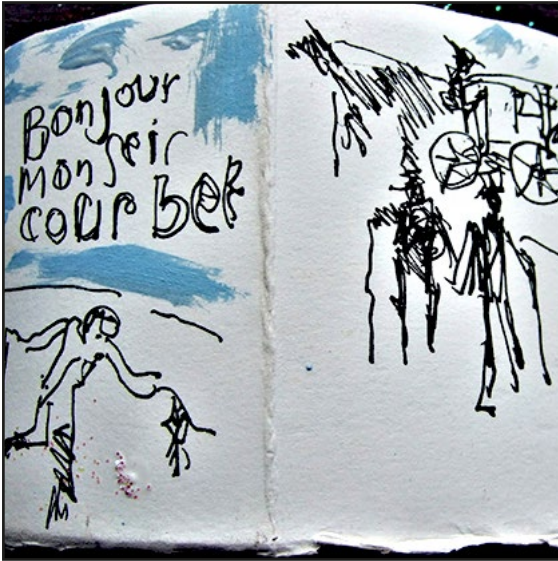 Bonjour
monseir
courbet